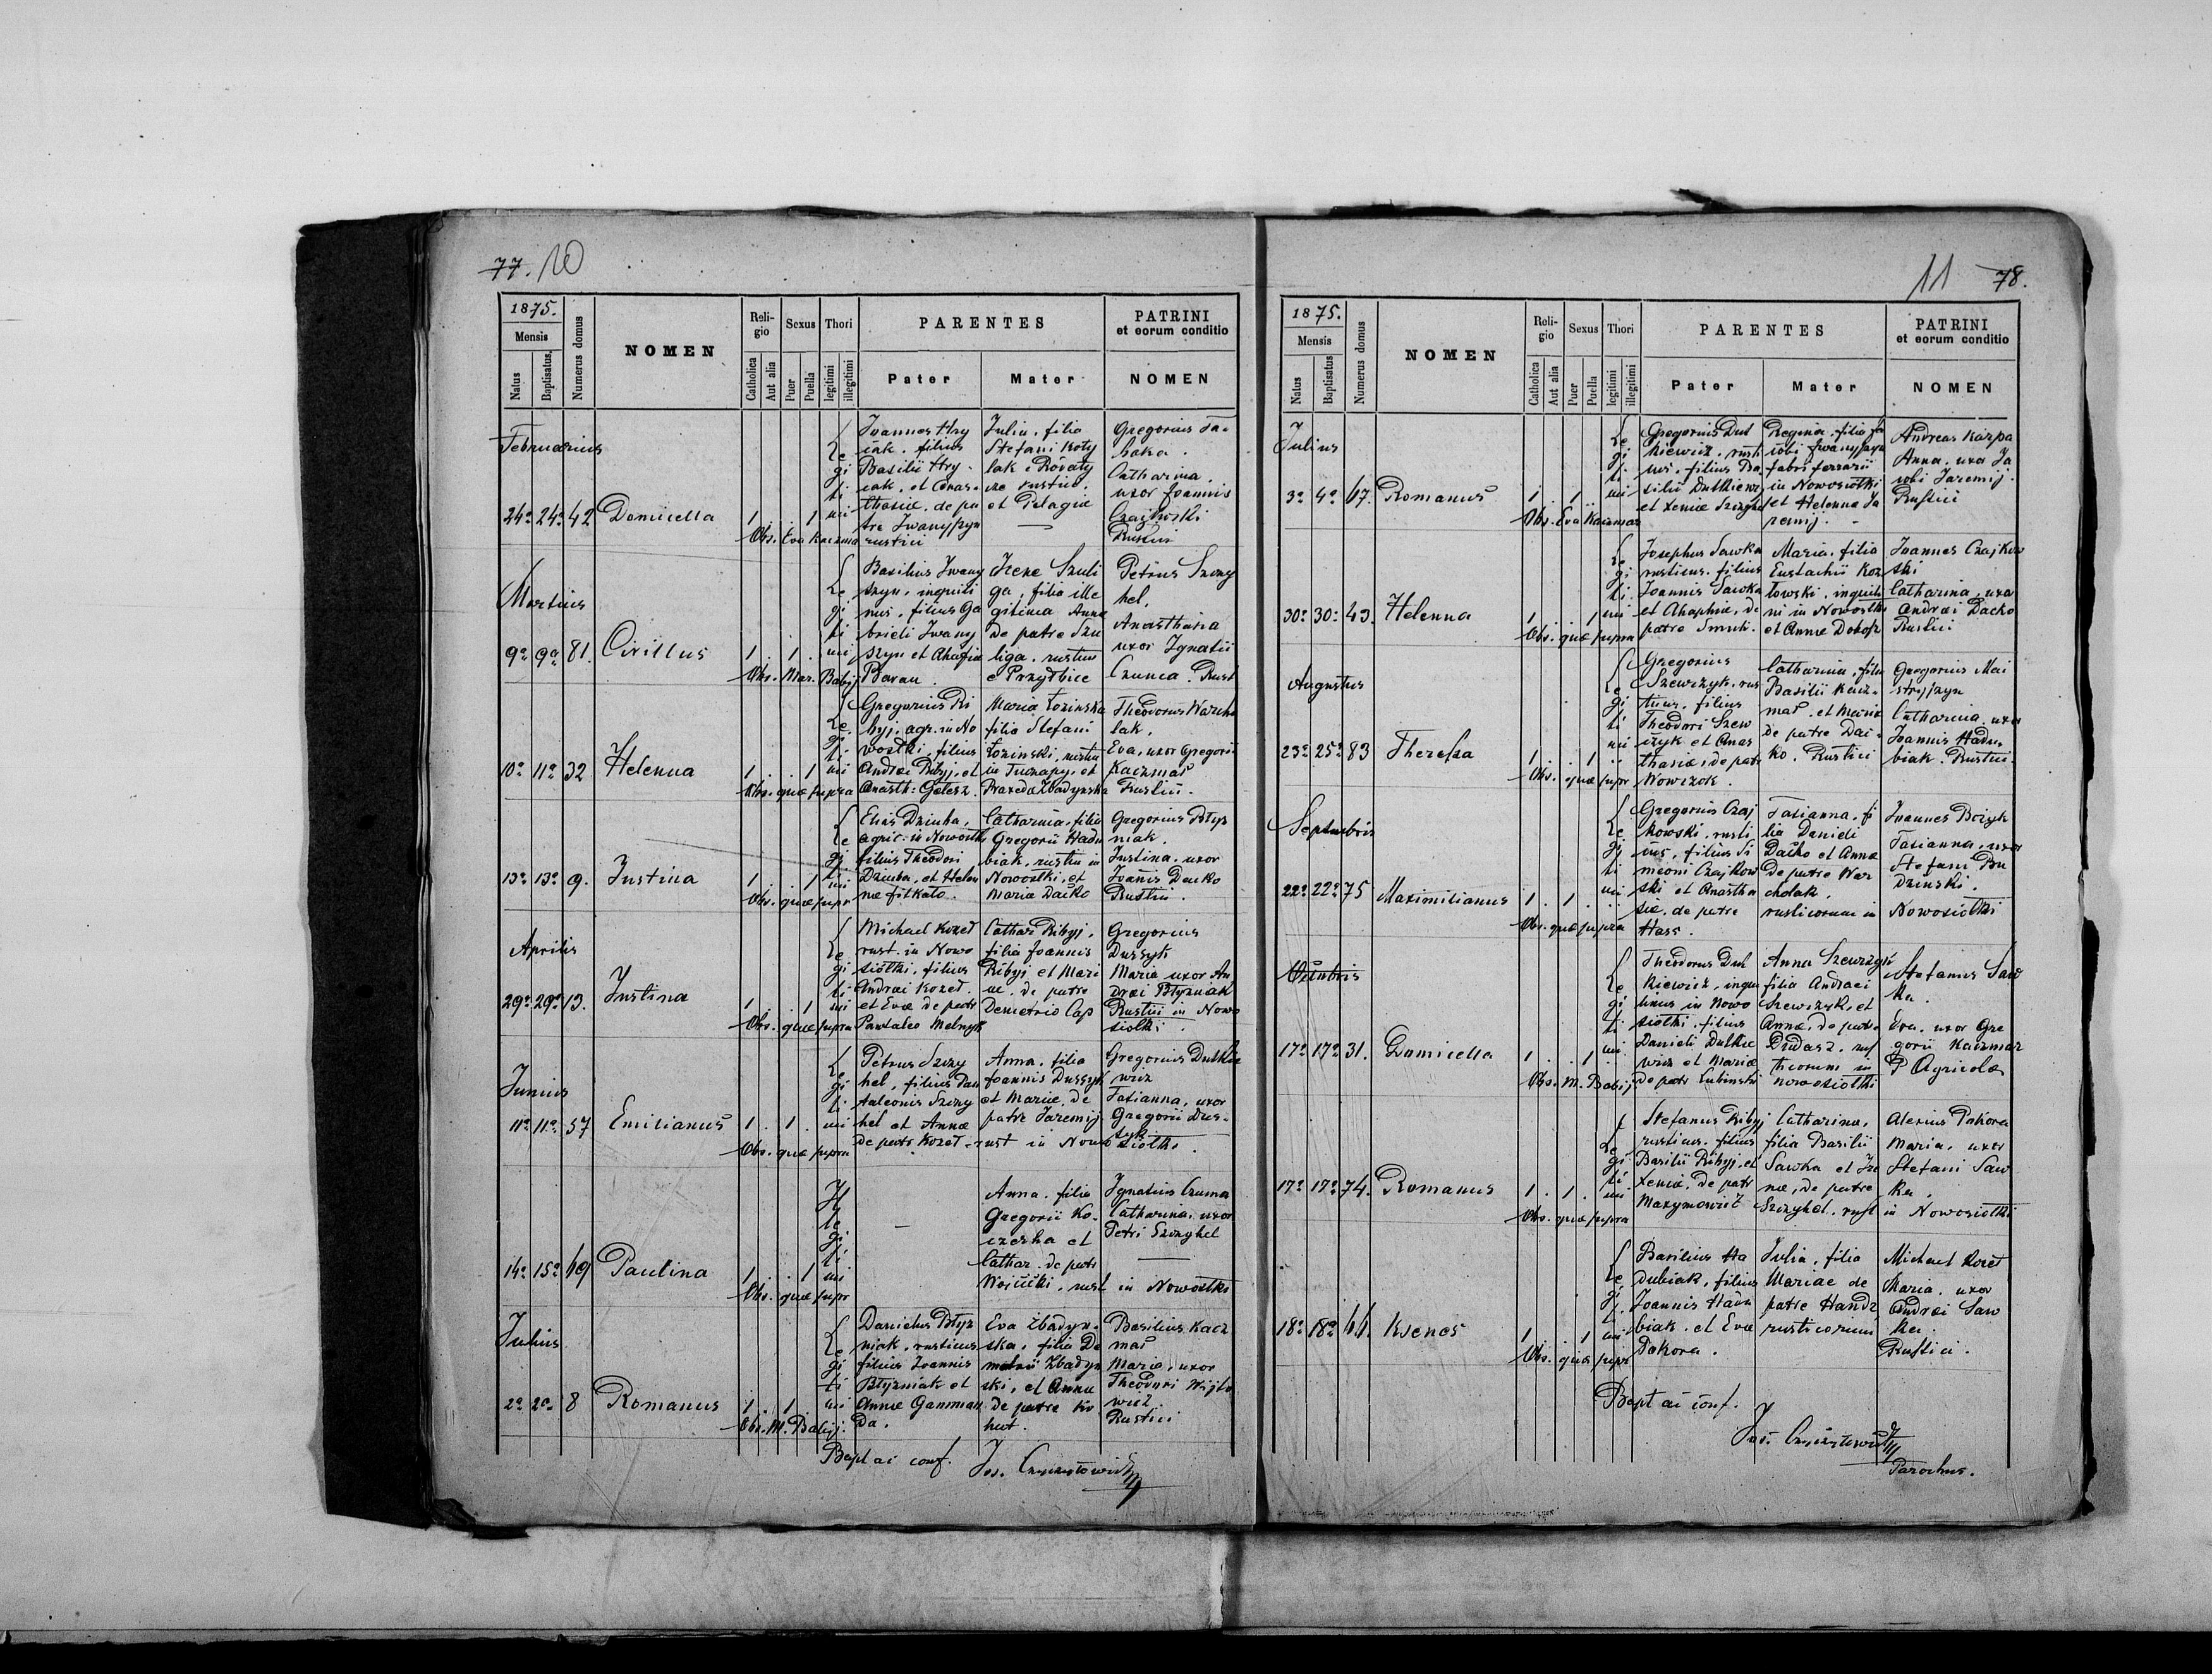 77. 10
1875.
Mensis
Natus
Baptisatus
Numerus domus
NOMEN
Religio
Catholica
Aut alia
Sexus
Puer
Puella
Thori
legitimi
illegitimi
PARENTES
Pater
Mater
PATRINI
et eorum conditio
NOMEN
Februarius
24a 24a 42 Domicella 1 . . 1
Legitimi
Obs. Eva Kaczmar
Joannes Hry
cak. filius
Basilii Hry-
cak. et Anas-
thasiae, de pa
tre Iwanyszyn
rustici
Julia. filia
Stefani Koty
lak e Rovaty
cze rustic.
et Pelagiae
Gregorius
Catharina,
uxor Joannis
Czajkowski
Rustici
Martius
9a 9a 81. Cirillus 1 . 1 .
Legitimi
Obs. Mar. Babij
Basilius Iwany
szyn, inquili
nus, filius Ga
brieli Iwany
szyn et Ahafia
Baran.
Irene Szuli
ga, filia ille
gitima Anna
de patre Szu
liga. rustici
e Przyłbice
Petrus Szczy
hel,
Anasthasia
uxor Ignatii
Czuma. Rust
10a 11a 32 Helenna 1 . . 1
Legitimi
Obs. quae supra
Gregorius Ri
byj, agr. in No
wosiłki, filius
Andraei Ribyj, et
Anasth: Gelesz.
Maria Łozinska
filia Stefani
Łozinski, rustici
in Tuczapy, et
Praxeda Zbadynska
Theodorus Warcho
lak.
Eva, uxor Gregorii
Kaczmar
Rustici.
13a 13a 9. Justina 1 . . 1
Legitimi
Obs. quae supr
Elias Dziuba,
agric. in Nowosiłki
filius Theodori
Dziuba, et Helen
nae Fitkalo.
Catharina, filia
Gregorii Hadu
biak, rustici in
Nowosiłki, et
Maria Dacko
Gregorius Błyz
niak.
Justina. uxor
Joannis Dacko
Rustici.
Aprilis
29a 29a 13. Justina 1 . . 1
Legitimi
Obs. quae supra
Michael Kozeł
rust. in Nowo
siółki, filius
Andraei Kozeł.
et Evae de patre
Pantaleo Melnyk
Cathar Ribyj,
filia Joannis
Ribyj et Mari
ae, de patre
Demetrio Cap
Gregorius
Dussyk
Maria uxor An
draei Błyzniak
Rustici in Nowo
siółki.
Junius
11a 11a 57 Emilianus 1 . 1 .
Legitimi
Obs. quae supra
Petrus Szczy
hel, filius Pan
taleonis Szczy
hel et Annae
de patr. Kozeł.
Anna, filia
Joannis Dussyk
et Mariae, de
patre Jaremij
rust in Nowosiółki
Gregorius Dutkie
wicz
Tatianna, uxor
Gregorii Dus-
syk
14a 15a 69 Paulina 1 . . 1
Illegitimi
Obs. quae supr
—
Anna. filia
Gregorii Ko-
czerha et
Cathar. de patr
Wojcicki, rust in Nowosiłki
Ignatius Czuma
Catharina, uxor
Petri Szczyhel
Julius
2a 2a 8 Romanus 1 . 1 .
Legitimi
Obs. M. Babij.
Danielus Błyz
niak, rusticus
filius Joannis
Błyzniak et
Annae Gamman
da.
Eva Zbadyn-
ska, filia De
metrii Zbadyn
ski, et Annae
de patre Ko
hut.
Basilius Kacz
mar
Maria, uxor
Theodori Wijto
wicz
Rustici
Bapt ai conf. Jos.
11 78.
1875.
Mensis
Natus
Baptisatus
Numerus domus
NOMEN
Religio
Catholica
Aut alia
Sexus
Puer
Puella
Thori
legitimi
illegitimi
PARENTES
Pater
Mater
PATRINI
et eorum conditio
NOMEN
Julius
3a 4a 67. Romanus 1 . 1 .
Legitimi
Obs. Eva Kaczmar
Gregorius Dut
kiewicz. rusti
cus. filius Ba
silii Dutkiewicz
et Xeniae Szczyhel
Regina. filia Ja
cobi Iwanyszyn
fabri ferrarii
in Nowosiółki
et Helenna Ja
remij.
Andreas Karpa
Anna. uxor Ja
cobi Jaremij.
Rustici
30a 30a 43. Helenna 1 . . 1
Legitimi
Obs. quae supra
Josephus Sawka
rusticus. filius
Joannis Sawka
et Ahaphiae, de
patre Smuk.
Maria. filia
Eustachii Koz
łowski, inquili
ni in Nowosiłki
et Annae Dobosz
Joannes Czajkow
ski
Catharina, uxor
Andraei Dacko
Rustici
Augustus
23a 25a 83 Theressa 1 . . 1
Legitimi
Obs. quae supr
Gregorius
Szewczyk. rus
ticus, filius
Theodori Szew
czyk et Anas
thasiae, de patr
Nowczok.
Catharina, filia
Basilii Kacz-
mar. et Mariae
de patre Dac-
ko. Rustici
Gregorius Mai
stryszyn
Catharina. uxor
Joannis Hadu-
biak. Rustici.
Septembris
22a 22a 75 Maximilianus 1 . 1 . .
Legitimi
Obs. quae supra
Gregorius Czaj
kowski, rusti
cus, filius Si
meoni Czajkow
ski et Anastha
siae, de patre
Hass.
Tatianna, fi
lia Danieli
Dacko et Annae
de patre War
cholak.
rusticorum in
Joannes Bożyk
Tatianna, uxor
Stefani Bu
dzinski.
Nowosiółki
Octobris
17a 17a 31. Domicella 1 . . 1
Legitimi
Obs. M. Babij
Theodorus Dut
kiewicz, inqui
linus in Nowo
siółki, filius
Danieli Dutkie
wicz et Mariae
de patr Lubinski
Anna Szewczyk
filia Andraei
Szewczyk, et
Annae, de patre
Dudasz. rus
ticorum in
Nowosiółki
Stefanus Saw
ka.
Eva. uxor Gre
gorii Kaczmar
Agricolae
17a 17a 74. Romanus 1 . 1 .
Legitimi
Obs. quae supra
Stefanus Ribyj
rusticus. filius
Basilii Ribyj, et
Xeniae, de patr
Maxymowicz
Catharina,
filia Basilii
Sawka et Ire
nae, de patre
Szczyhel. rust
Alexius Pakora
Maria, uxor
Stefani Saw
ka.
in Nowosiółki
18a 18a 66. Ksenes 1 . . 1
Legitimi
Obs. quae supr
Basilius Ha
dubiak, filius
Joannis Hadu
biak. et Evae
Pakora.
Julia, filia
Mariae de
patre Handz
rusticorum
Michael Kozeł
Maria. uxor
Andraei Saw
ka.
Rustici.
Bapt ai conf.
Jos.
Parochus.